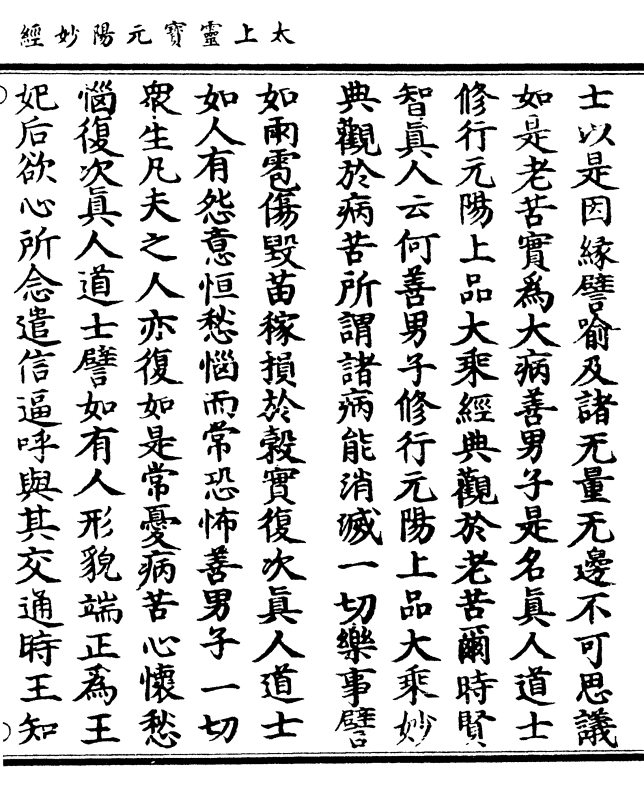 太上靈寶元陽妙經
士以是因緣譬喻及諸无量无邊不可思議
如是老苦實爲大病善男子是名眞人道士
修行元陽上品大乘經典觀於老苦爾時賢
智眞人云何善男子修行元陽上品大乘妙
典觀於病苦所謂諸病能消滅一切樂事譬
如雨雹傷毀苗稼損於穀實復次眞人道士
如人有怨意恒愁惱而常恐怖善男子一切
衆生凡夫之人亦復如是常憂病苦心懷愁
惱復次眞人道士譬如有人形貌端正爲王
妃后欲心所念遣信逼呼與其交通時王知